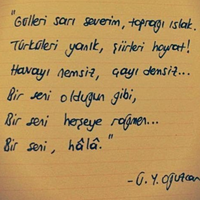 "Gülleri sarı severim, toprağı ıslak.
Türküleri yanık, şiirleri hoyrat!
Havayı nemsiz, çayı demsiz...
Bir seni olduğun gibi,
Bir seni herşeye rağmen...
Bir seni, hâlâ."
-Ü. Y. Oğuzcan